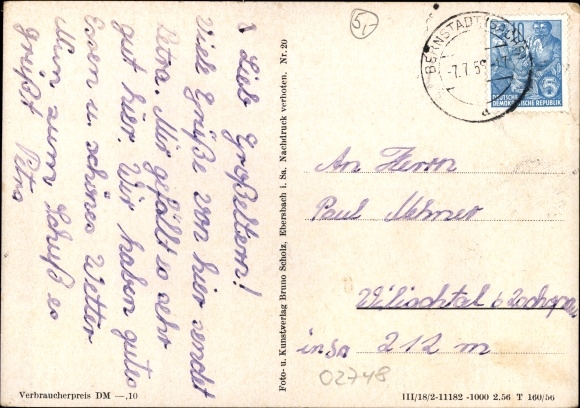 Lieb Großeltern!
Viele Grüße von hier sendet
Petra. Mir gefällt es sehr
gut hier. Wir haben gutes
Essen u. schönes Wetter
Nun zum Schluß es
grüßt Petra
Foto- u. Kunstverlag Bruno Scholz, Ebersbach i. Sa. Nachdruck verboten. Nr. 20
5,-
BERNSTADT (SACHS)
-7.7.5
d
DEUTSCHE
DEMOKRATISCHE REPUBLIK
5
An Herrn
Paul
Wilischtal b Zschopau
in Sa 212 m
02748
Verbraucherpreis DM —,10
III/18/2-11182 -1000 2.56 T 160/56